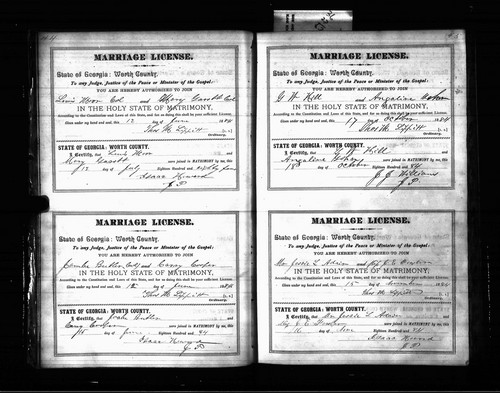 MARRIAGE LICENSE.
State of Georgia: Worth County.
To any Judge, Justice of the Peace or Minister of the Gospel:
YOU ARE HEREBY AUTHORIZED TO JOIN
and Mary
IN THE HOLY STATE OF MATRIMONY,
According to the Constitution and Laws of this State, and for so doing this shall be your sufficient License.
Given under my hand and seal, this 12 day of June 1884
Thos M. Tippitt [L. S.]
Ordinary.
STATE OF GEORGIA: WORTH COUNTY.
I Certify, that and
Mary were joined in MATRIMONY by me, this
12 day of July Eighteen Hundred and eighty four
Isaac Howard
J P
MARRIAGE LICENSE.
State of Georgia: Worth County.
To any Judge, Justice of the Peace or Minister of the Gospel:
YOU ARE HEREBY AUTHORIZED TO JOIN
G W Hill and Angaline
IN THE HOLY STATE OF MATRIMONY,
According to the Constitution and Laws of this State, and for so doing this shall be your sufficient License.
Given under my hand and seal, this 17 day of October 1884
Thos M. Tippitt [L. S.]
Ordinary.
STATE OF GEORGIA: WORTH COUNTY.
I Certify, that G W Hill and
Angaline were joined in MATRIMONY by me, this
18 day of October Eighteen Hundred and 84
J. J. Williams
J P
MARRIAGE LICENSE.
State of Georgia: Worth County.
To any Judge, Justice of the Peace or Minister of the Gospel:
YOU ARE HEREBY AUTHORIZED TO JOIN
Butler and
IN THE HOLY STATE OF MATRIMONY,
According to the Constitution and Laws of this State, and for so doing this shall be your sufficient License.
Given under my hand and seal, this 12 day of June 1884
Thos M. Tippitt [L. S.]
Ordinary.
STATE OF GEORGIA: WORTH COUNTY.
I Certify, that Butler and
were joined in MATRIMONY by me, this
day of June Eighteen Hundred and 84
Isaac Howard
J. P
MARRIAGE LICENSE.
State of Georgia: Worth County.
To any Judge, Justice of the Peace or Minister of the Gospel:
YOU ARE HEREBY AUTHORIZED TO JOIN
Mr Jessie L and
IN THE HOLY STATE OF MATRIMONY,
According to the Constitution and Laws of this State, and for so doing this shall be your sufficient License.
Given under my hand and seal, this 15 day of November 1884
Thos M. Tippitt [L. S.]
Ordinary.
STATE OF GEORGIA: WORTH COUNTY.
I Certify, that Mr Jessie L and
were joined in MATRIMONY by me, this
16 day of Nov Eighteen Hundred and 84
Isaac Howard
J P